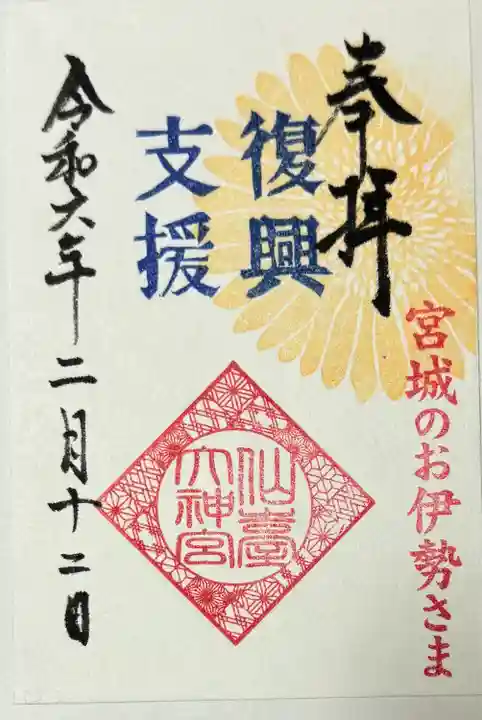 奉拝
復興
支援
宮城のお伊勢さま
仙臺
大神宮
令和六年二月十二日